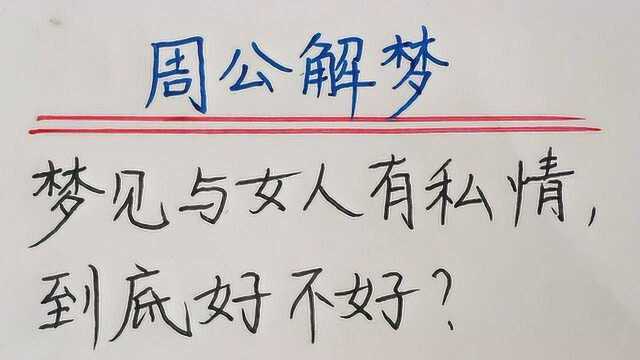 周公解梦
梦见与女人有私情,
到底好不好?